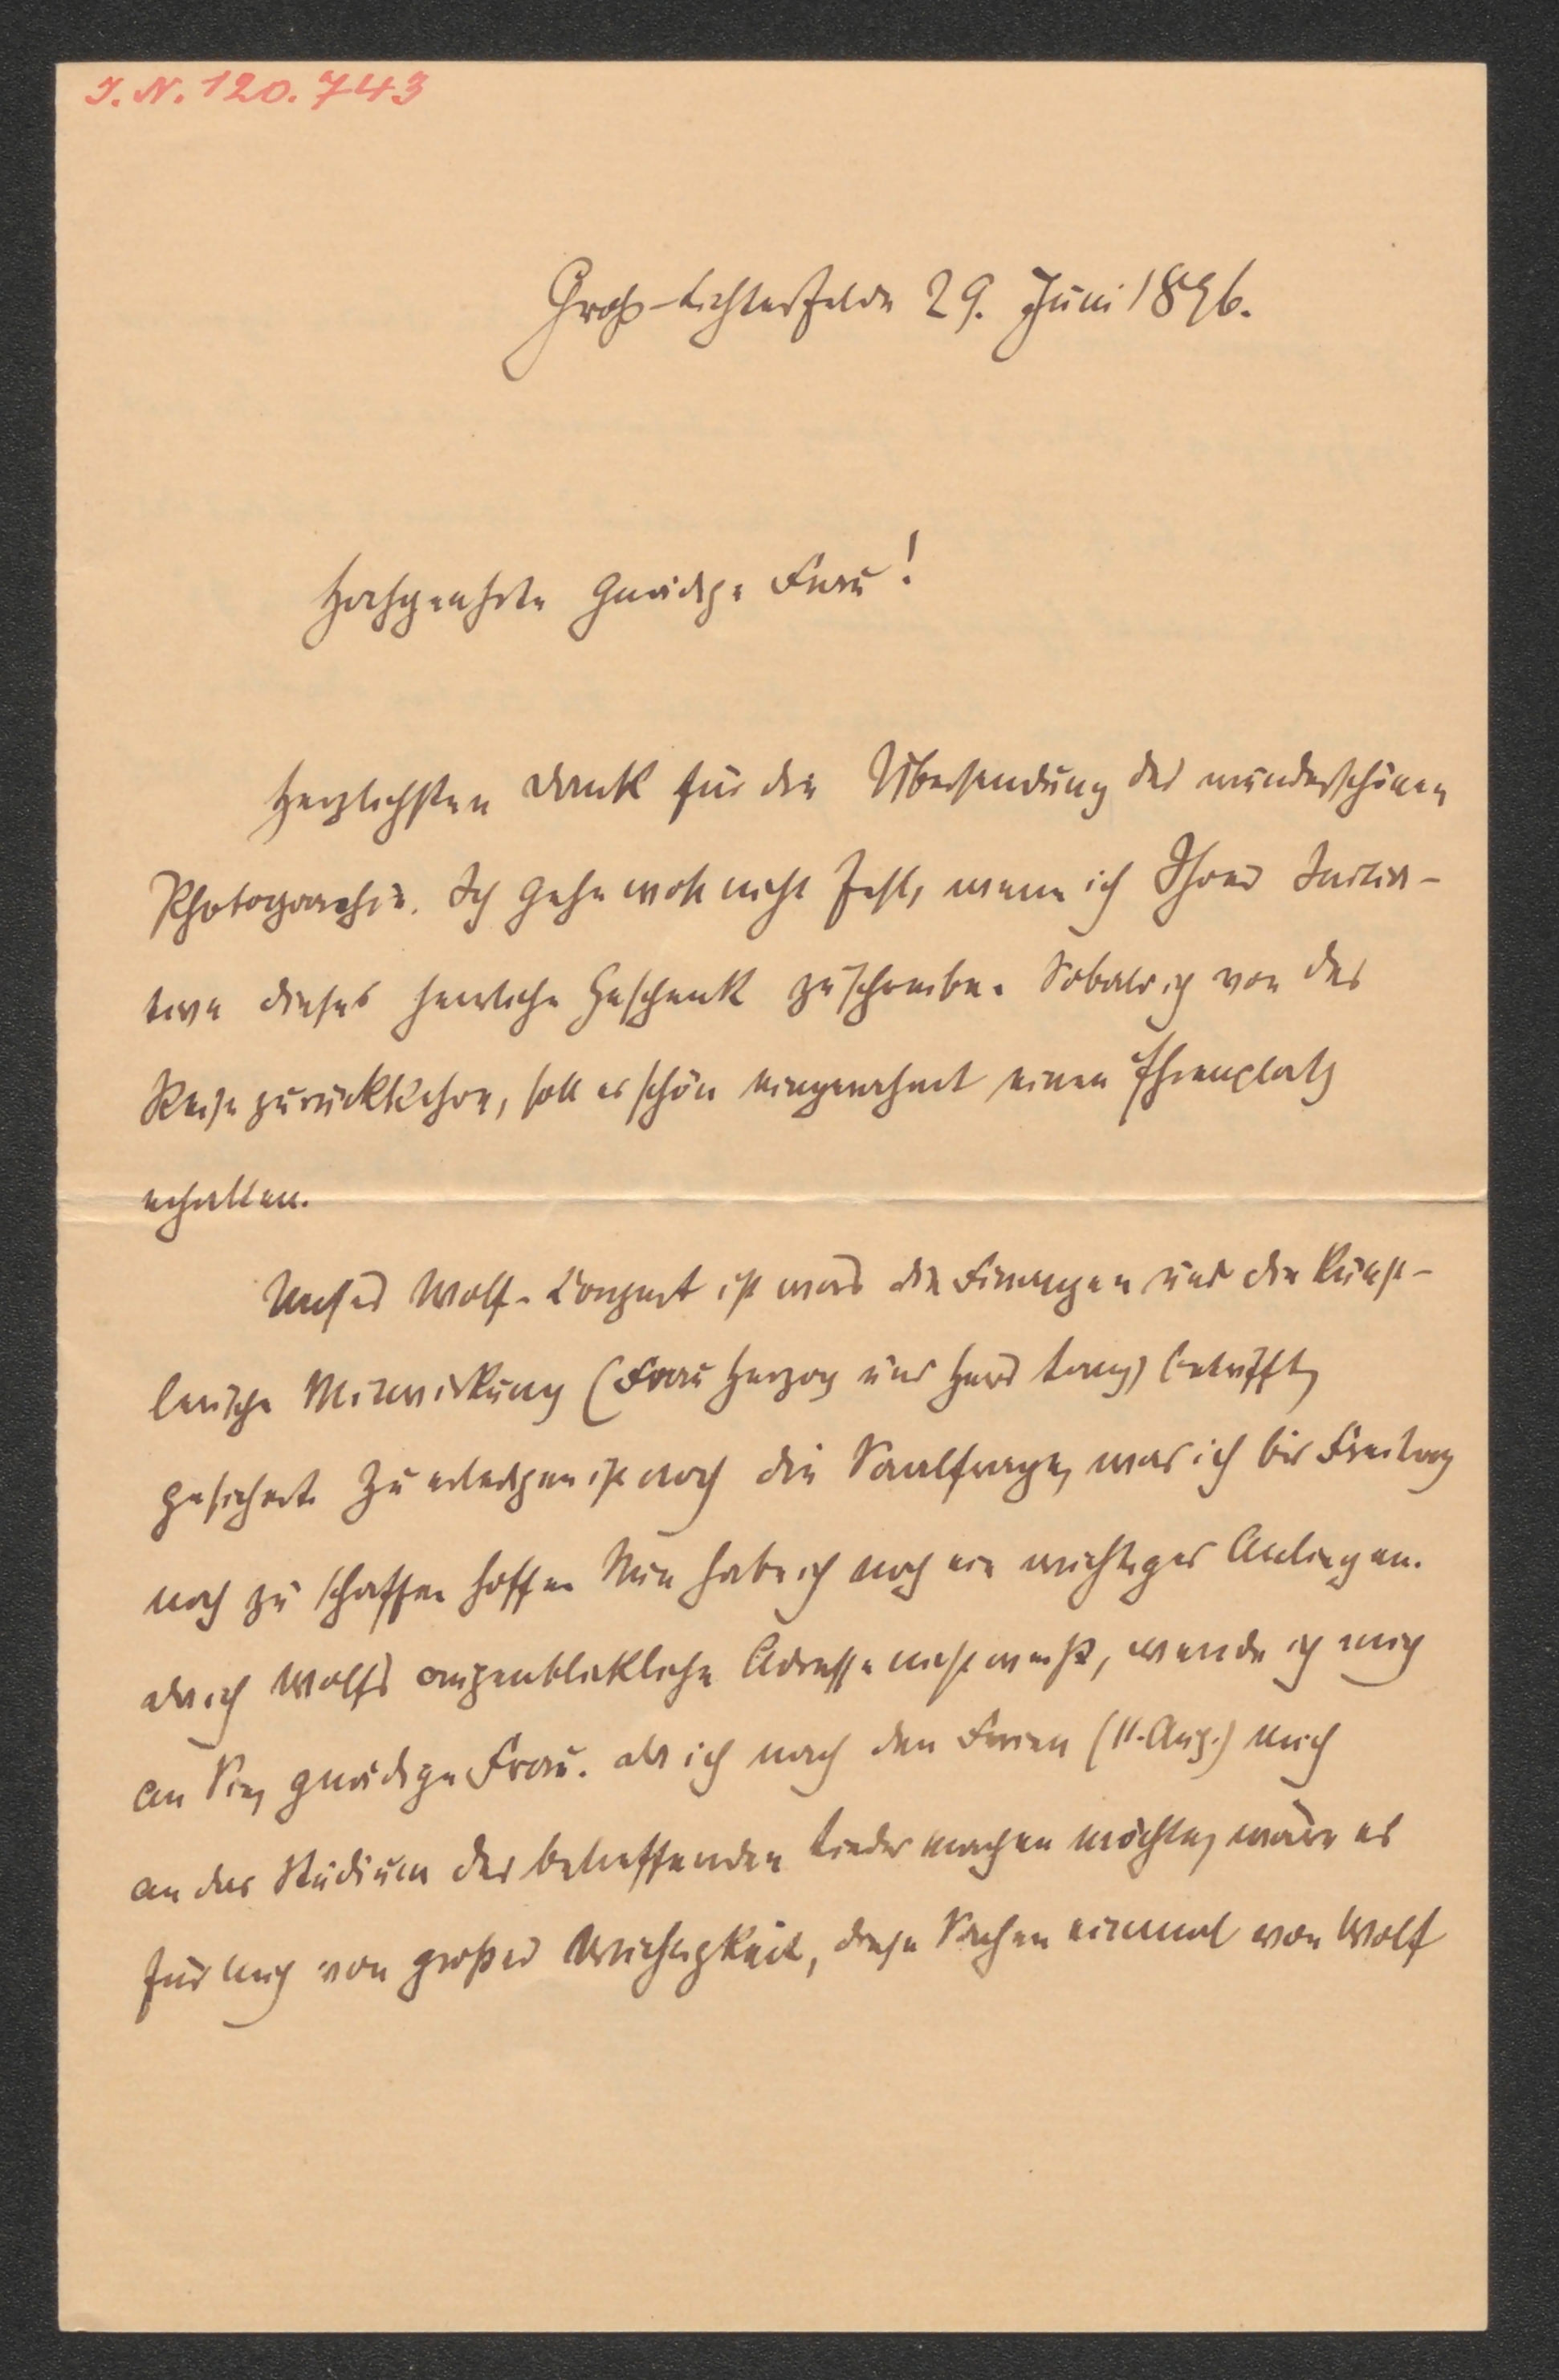 I. N. 120.743
Groß-Lichterfelde 29. Juni 1896.
Hochgeehrte gnädige Frau!
Herzlichsten Dank für die Übersendung der wunderschönen
Photographie. Ich gehe wohl nicht fehl, wenn ich Ihrer Initia-
tive dieses herrliche Geschenk zuschreibe. Sobald ich von der
Reise zurückkehre, soll es schön eingerahmt einen Ehrenplatz
erhalten.
Unser Wolf-Conzert ist was die Finanzen und die künst-
lerische Mitwirkung (Frau Herzog und Herr Lang) betrifft,
gesichert. Zu erledigen ist noch die Saalfrage, was ich bis Freitag
noch zu schaffen hoffe. Nun habe ich noch ein wichtiges Anliegen.
Da ich Wolfs augenblickliche Adresse nicht weiß, wende ich mich
an Sie, gnädige Frau. Da ich nach den Ferien (11. Aug.) mich
an das Studium der betreffenden Lieder machen möchte, wäre es
für mich von großer Wichtigkeit, diese Sachen einmal von Wolf